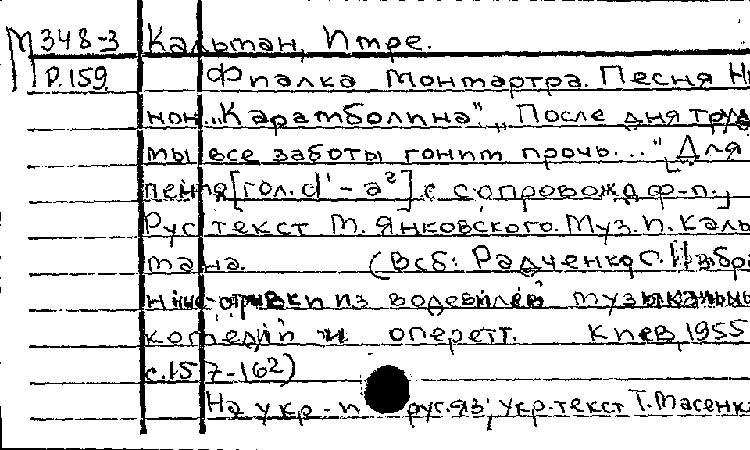 М348-3 Кальман, Имре.
Р.159 Фиалка Монмартра. Песня Ни
нон „Карамболина", „После дня труда
мы все заботы гоним прочь..." [Для
пения [гол. d¹-a²] с сопровожд ф-п.]
Рус текст М. Янковского. Муз. И. Каль
мана. (В сб: Радченко С. Избран
ные отрывки из водевилей музыкальных
комедий и оперетт. Киев, 1955
с.157-162)
На укр-и рус.яз; Укр.текст Т. Масенко